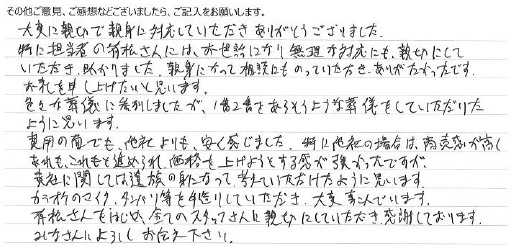 その他ご意見、ご感想などございましたら、ご記入をお願いします。
大変に親切で親身に対応していただきありがとうございました。
特に担当者の若松さんには、お世話になり無理な対応にも、親切にして
いただき、助かりました。親身になって相談にものっていただき、ありがたかったです。
お礼を申し上げたいと思います。
色々な葬儀に参列しましたが、1番2番をあらそうような葬儀をしていただけた
ように思います。
費用の面でも、他社よりも、安く感じました。特に他社の場合は、商売感が高く
あれも、これもと進められ、価格を上げようとする感が強かったですが
貴社に関しては遺族の身になって、考えていただけたように思います
カラオケのマイク、タンバリン等を手造りしていただき、大変、喜んでいます。
若松さんをはじめ、全てのスタッフさんに親切にしていただき、感謝しております。
みなさんによろしくお伝え下さい。